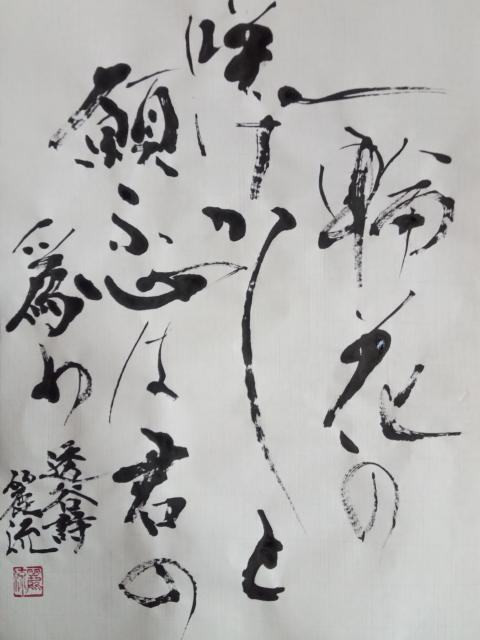 一輪花の
咲けかしと
願ふ心は君の
爲め
透谷詩
麗流